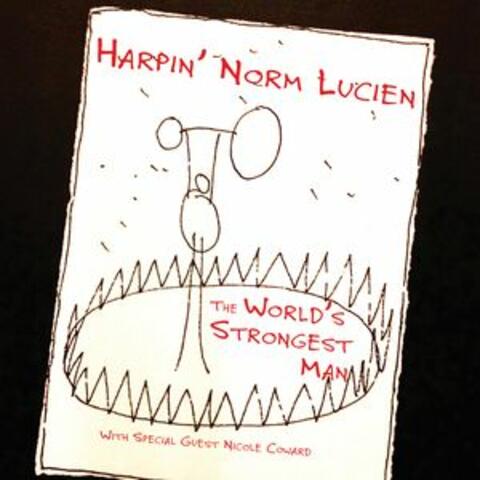 HARPIN' NORM LUCIEN
THE WORLD'S
STRONGEST
MAN
WITH SPECIAL GUEST NICOLE COWARD